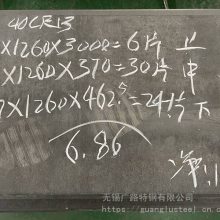 40Cr13
X1260X3000=6片 上
X1260X370=30片 中
X1260X462.5=24片 下
6.86
净
无锡广路特钢有限公司
https://guanglusteel.cn.